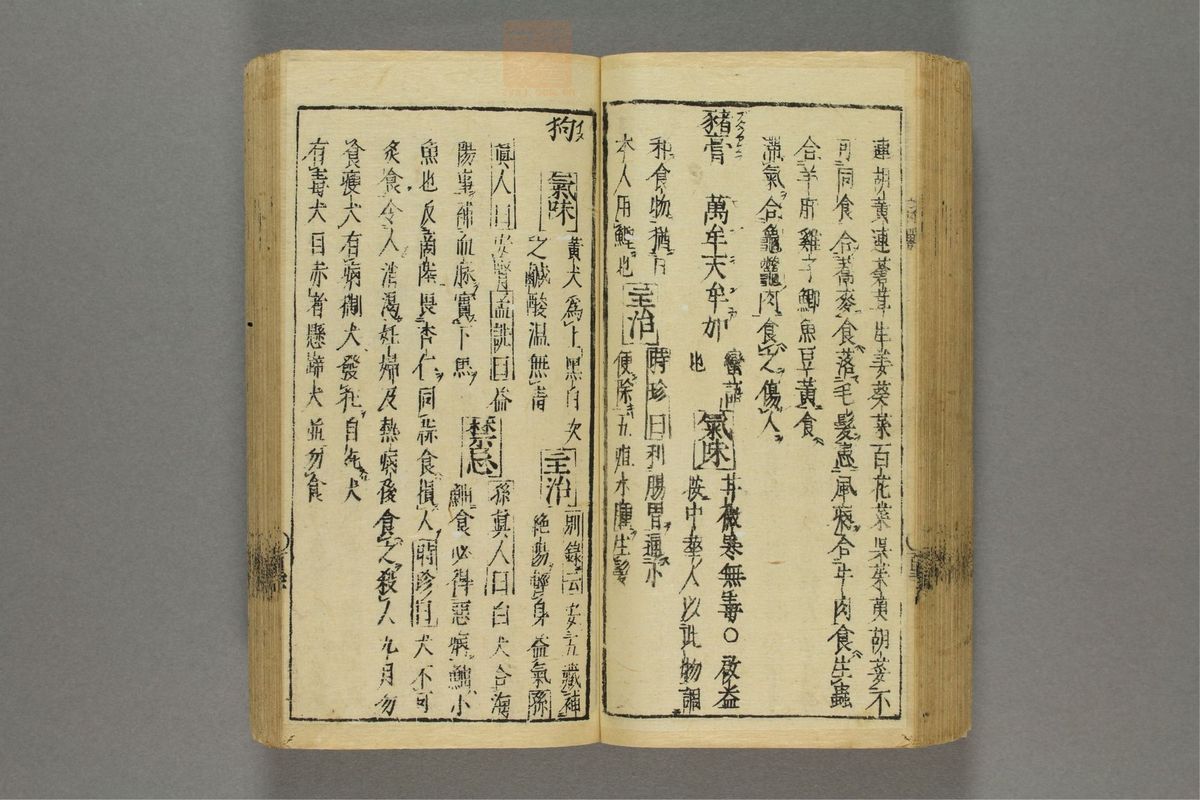 連胡黃連蕎茸生姜葵菜百花菜吳茱萸胡荽不
可同食合蕎麥食落毛髮患風病合牛肉食生蟲
合羊肝雞子鯽魚豆黃食
滯氣合龜鼈肉食之傷人
豬膏 萬牟天牟加 蠻語也 氣味 甘微寒無毒〇啟益
按中華人以此物調
和食物猶日
本人用鰹也 主治 時珍曰利腸胃通小
便除五疸水腫生髮
狗 氣味 黃犬爲上黑白次
之鹹酸温無毒 主治 別錄云安五臟補
絶傷輕身益氣孫
眞人曰安腎孟詵曰益
陽事補血脉實下焦 禁忌 孫眞人曰白犬合海
鮋食必得惡病鮋小
魚也反商陸畏杏仁同蒜食損人時珍曰犬不可
炙食令人消渴妊婦及熱病後食之殺人九月勿
食瘦犬有病猘犬發狂自死犬
有毒犬目赤者懸蹄犬並勿食